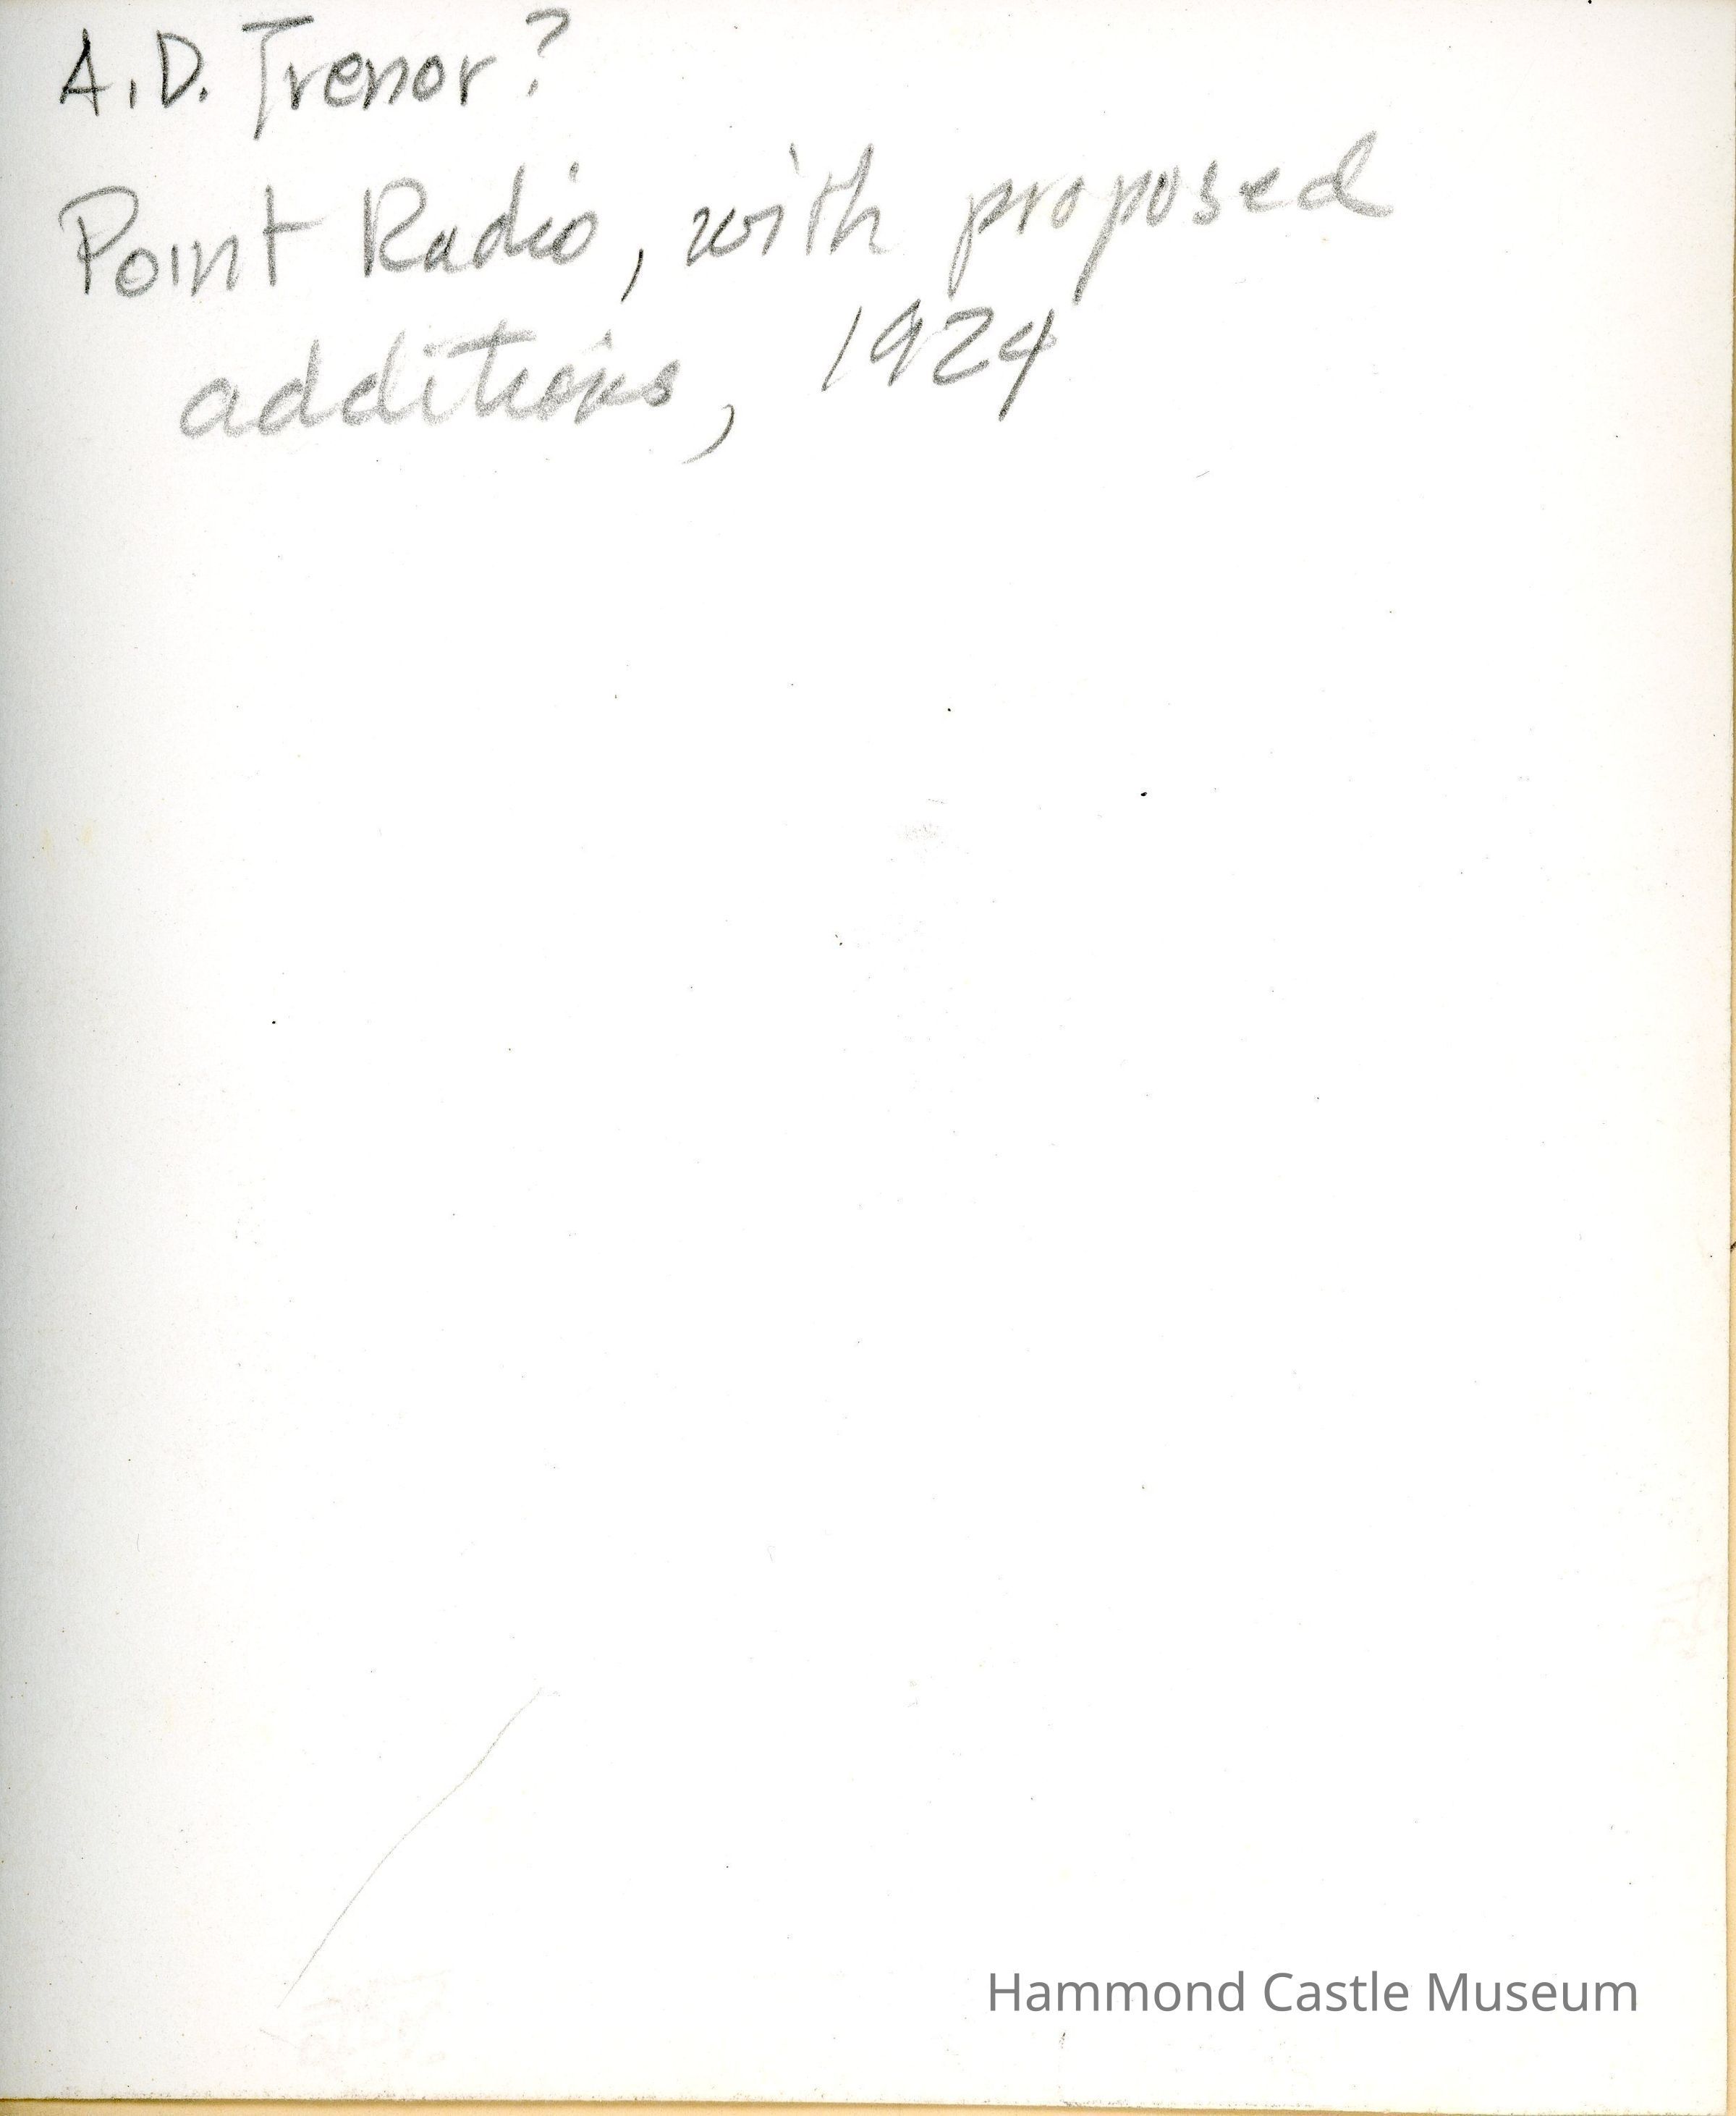 A.D. Trenor?
Point Radio, with proposed
additions, 1924
Hammond Castle Museum